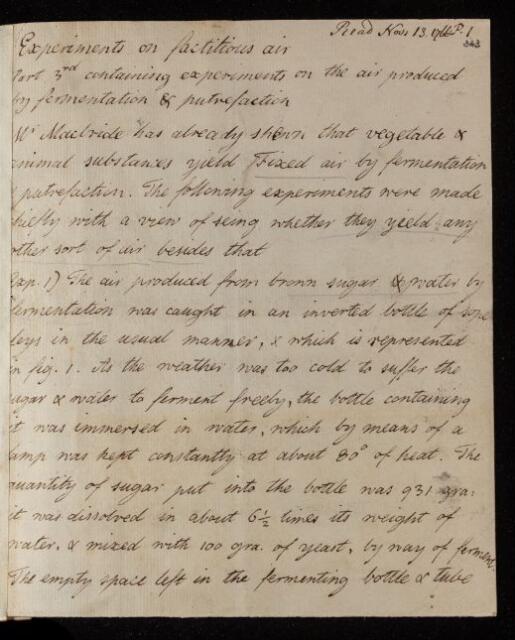 Read Nov. 13. 1766 P. 1
343
Experiments on factitious air
Part 3rd containing experiments on the air produced
by fermentation & putrefaction
Mr Macbride has already shewn that vegetable &
animal substances yield Fixed air by fermentation
& putrefaction. The following experiments were made
chiefly with a view of seing whether they yield any
other sort of air besides that
Exp. 1) The air produced from brown sugar & water by
fermentation was caught in an inverted bottle of sope
leys in the usual manner, & which is represented
in fig. 1. As the weather was too cold to suffer the
sugar & water to ferment freely, the bottle containing
it was immersed in water, which by means of a
lamp was kept constantly at about 80° of heat. The
quantity of sugar put into the bottle was 931 gra:
it was dissolved in about 6½ times its weight of
water, & mixed with 100 gra. of yeast, by way of ferment.
The empty space left in the fermenting bottle & tube